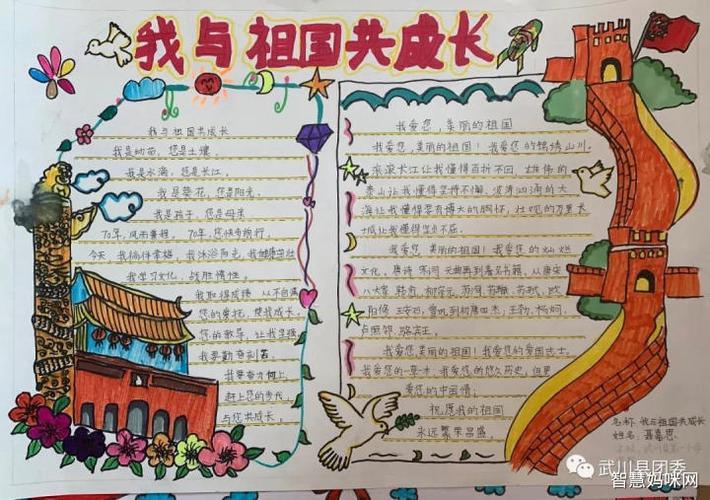 我与祖国共成长
我与祖国共成长
我是幼苗，您是土壤，
我是水滴，您是长江，
我是葵花，您是阳光，
我是孩子，您是母亲
70年，风雨兼程，70年，您快步前行，
今天，我佩伴掌握，我沐浴阳光，我健康茁壮
我学习文化，战胜惰性，
我取得成绩，从不自满
您的爱抚，使我成长，
您的教导，让我坚强
我要勤奋刻苦
我要奋力向上，
赶上您的步伐，
与您共成长，
我爱您，美丽的祖国
我爱您，美丽的祖国！我爱您的锦绣山川。
滚滚长江让我懂得百折不回，雄伟的
泰山让我懂得坚持不懈，波涛汹涌的大
海让我懂得要有博大的胸怀，壮观的万里长
城让我懂得坚贞不屈。
我爱您，美丽的祖国！我爱您的灿烂
文化，唐诗 宋词 元曲再到著名书籍，从唐宋
八大家 韩愈，柳宗元，苏洵，苏轼，苏辙，欧
阳修，王安石，曾巩到初唐四杰：王勃，杨炯，
卢照邻，骆宾王。
我爱您，美丽的祖国！我爱您的爱国志士。
我爱您的一草一木，我爱您的悠久历史，但更
爱您的中国情；
祝愿我的祖国
永远繁荣昌盛。
名称：我与祖国共成长
姓名：聂嘉思
武川县团委
智慧妈咪网